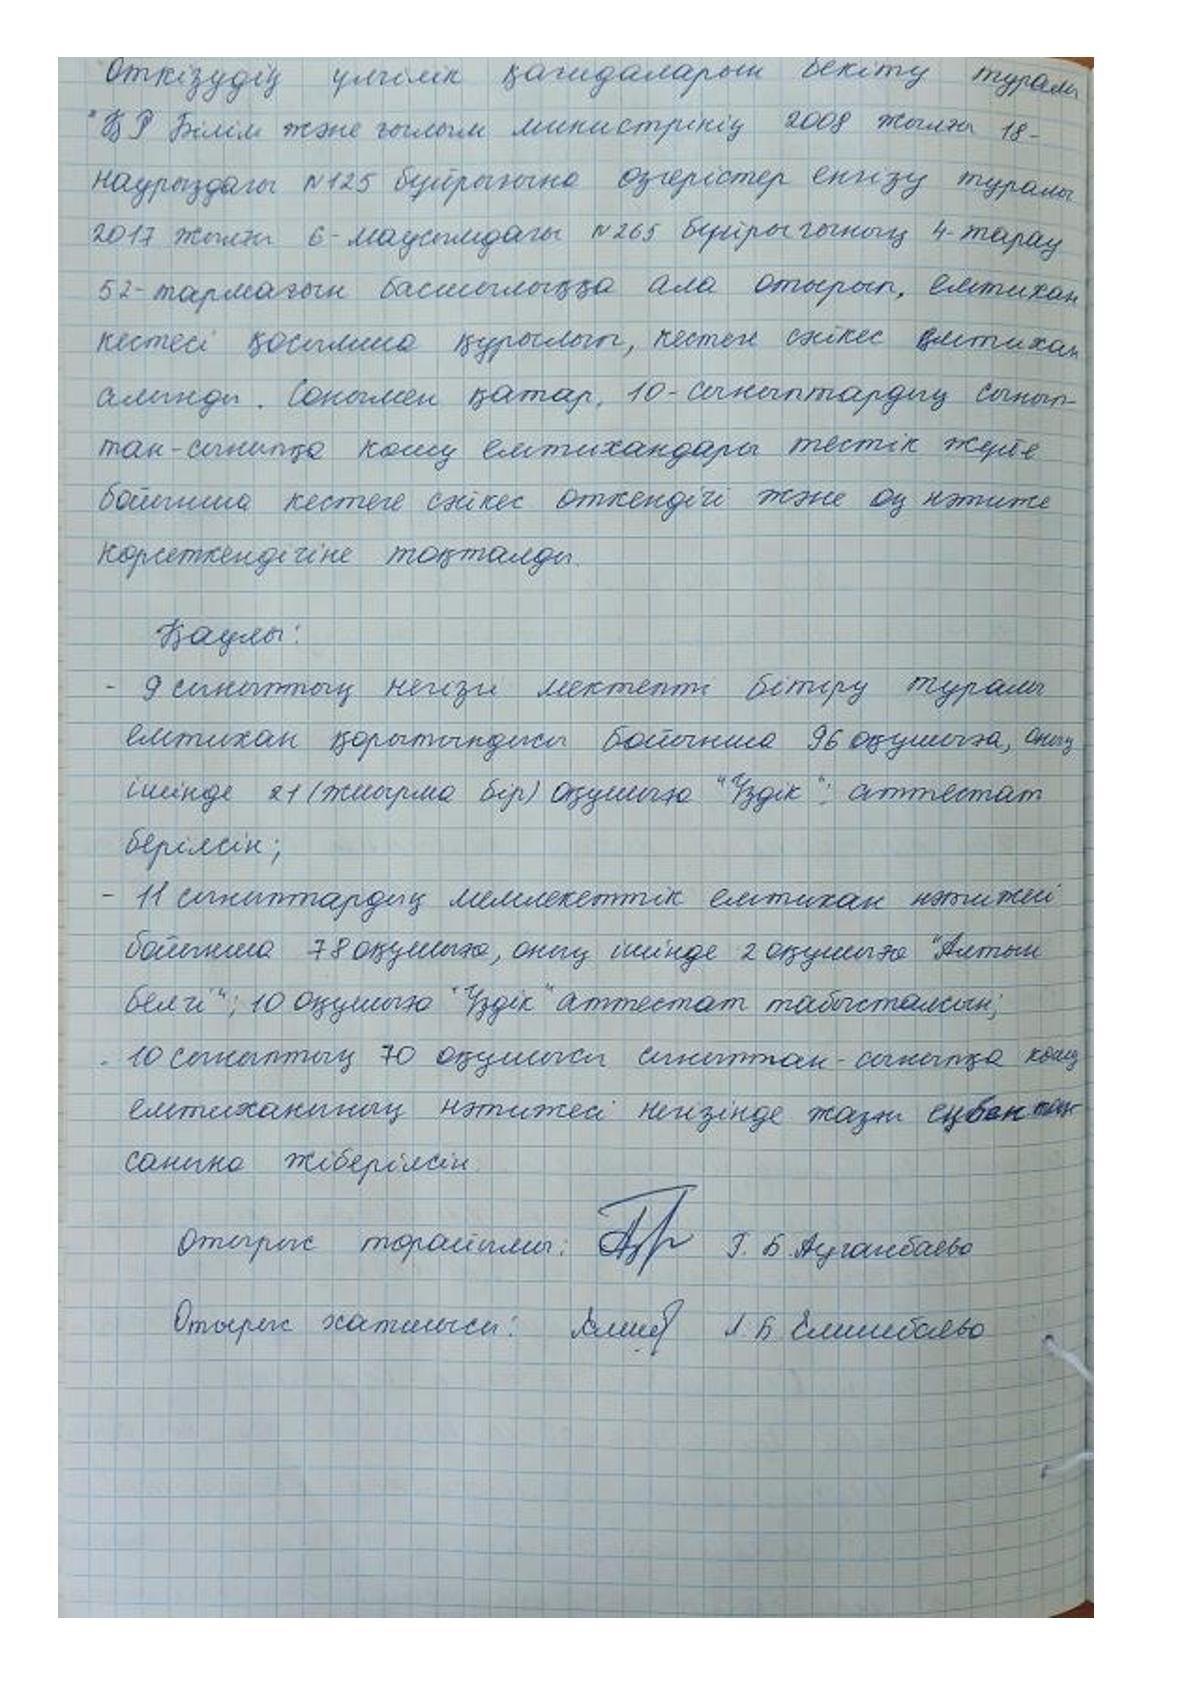 Өткізудің үлгілік қағидаларын бекіту туралы
"ҚР Білім және ғылым министрінің 2008 жылғы 18-
наурыздағы №125 бұйрығына өзгерістер енгізу туралы
2017 жылғы 6-маусымдағы №265 бұйрығының 4-тарау
52-тармағын басшылыққа ала отырып, емтихан
кестесі қосымша құрылып, кестеге сәйкес емтихан
алынды. Сонымен қатар, 10-сыныптардың сынып-
тан-сыныпқа көшу емтихандары тестік жүйе
бойынша кестеге сәйкес өткендігі және оң нәтиже
көрсеткендігіне тоқталды.
Қаулы:
- 9 сыныптың негізгі мектепті бітіру туралы
емтихан қорытындысы бойынша 96 оқушыға, оның
ішінде 21 (жиырма бір) оқушыға "Үздік"; аттестат
берілсін;
- 11 сыныптардың мемлекеттік емтихан нәтижесі
бойынша 78 оқушыға, оның ішінде 2 оқушыға "Алтын
белгі"; 10 оқушыға "Үздік" аттестат табысталсын;
- 10 сыныптың 70 оқушысы сыныптан-сыныпқа көшу
емтиханының нәтижесі негізінде жазғы еңбек тоқ-
санына жіберілсін.
Отырыс төрайымы: Г. Б. Ауганбаева
Отырыс хатшысы: Л. Б. Елишбаева